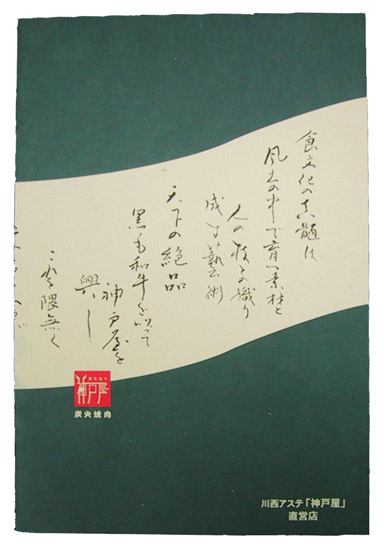 食文化の真髄は
風土の中で育つ素材と
人の技との織り
成す藝術
天下の絶品
黒毛和牛を以って
神戸屋を
興し
ここを隈無く
神戸屋
炭火焼肉
川西アステ「神戸屋」
直営店